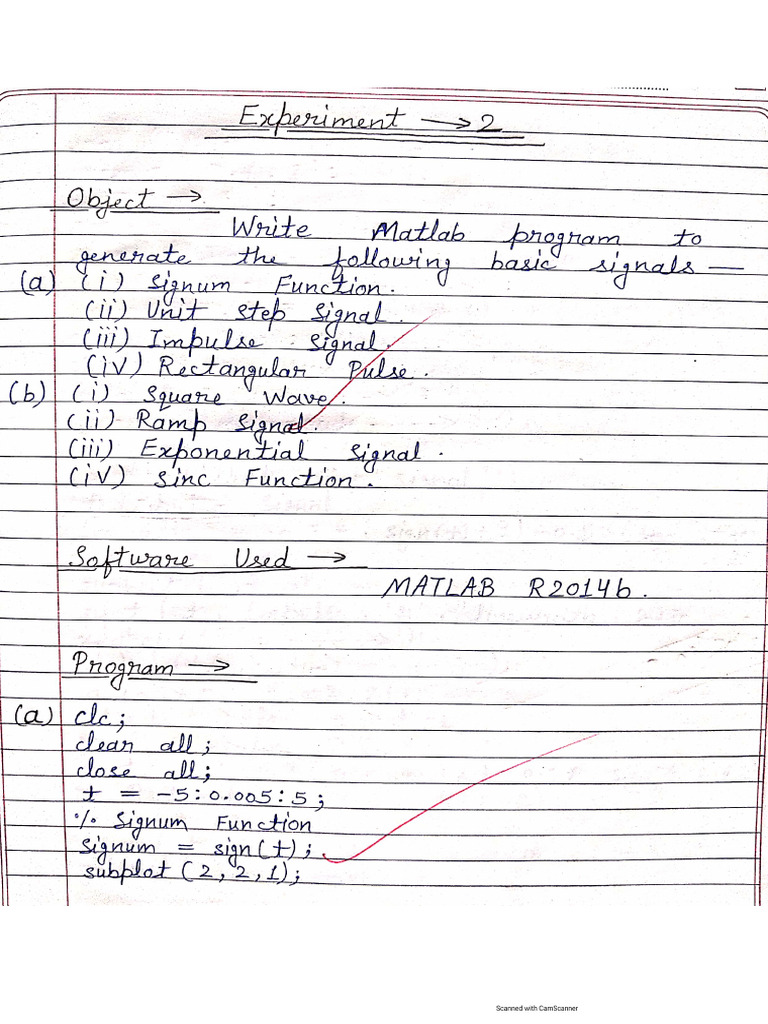 Experiment → 2
Object →
Write Matlab program to
generate the following basic signals —
(a) (i) Signum Function.
(ii) Unit Step Signal.
(iii) Impulse Signal.
(iv) Rectangular Pulse.
(b) (i) Square Wave.
(ii) Ramp Signal.
(iii) Exponential Signal.
(iv) Sinc Function.
Software Used →
MATLAB R2014b.
Program →
(a) clc;
clear all;
close all;
t = -5:0.005:5;
% Signum Function
Signum = sign(t);
subplot (2,2,1);
Scanned with CamScanner